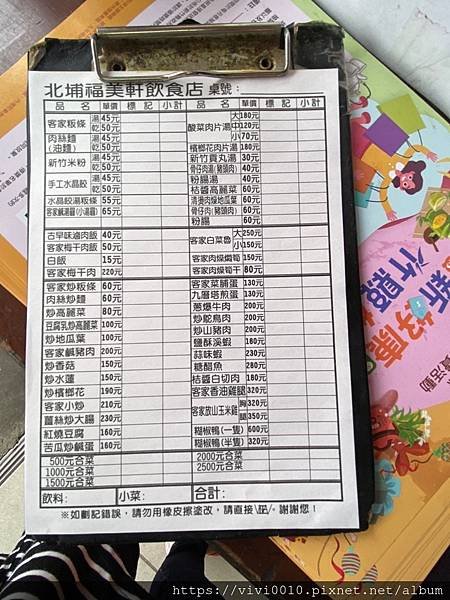 北埔福美軒飲食店 桌號:
品 名 單價 標 記 小計
客家粄條 湯 45元
乾 50元
肉絲麵(油麵) 湯 45元
乾 50元
新竹米粉 湯 45元
乾 50元
手工水晶餃 湯 45元
乾 50元
水晶餃湯粄條 55元
客家鹹湯圓(小湯圓) 65元
古早味滷肉飯 40元
客家梅干肉飯 50元
白飯 15元
客家梅干肉 220元
客家炒粄條 60元
肉絲炒麵 60元
炒高麗菜 80元
豆腐乳炒高麗菜 100元
炒地瓜葉 100元
客家鹹豬肉 200元
炒香菇 150元
炒水蓮 150元
炒檳榔花 190元
客家小炒 210元
薑絲炒大腸 230元
紅燒豆腐 160元
苦瓜炒鹹蛋 160元
500元合菜
1000元合菜
1500元合菜
品 名 單價 標 記 小計
酸菜肉片湯 大 180元
中 120元
小 70元
檳榔花肉片湯 180元
新竹貢丸湯 30元
骨仔肉湯(豬頭肉) 40元
粉腸湯 40元
桔醬高麗菜 60元
清燙肉燥地瓜葉 60元
骨仔肉(豬頭肉) 60元
粉腸 60元
客家白菜魯 大 250元
小 150元
客家肉燥爌筍 150元
客家肉燥筍干 80元
客家菜脯蛋 130元
九層塔煎蛋 130元
蔥爆牛肉 200元
炒鴕鳥肉 200元
炒山豬肉 200元
鹽酥溪蝦 180元
蒜味蝦 230元
糖醋魚 280元
桔醬白切肉 180元
客家香油雞腿 320元
客家放山玉米雞 胸 320元
腿 350元
糊椒鴨(一隻) 600元
糊椒鴨(半隻) 320元
2000元合菜
2500元合菜
飲料: 小菜: 合計:
※如劃記錯誤，請勿用橡皮擦塗改，請直接\認/，謝謝您！
新好康
https://vivi0010.pixnet.net/album